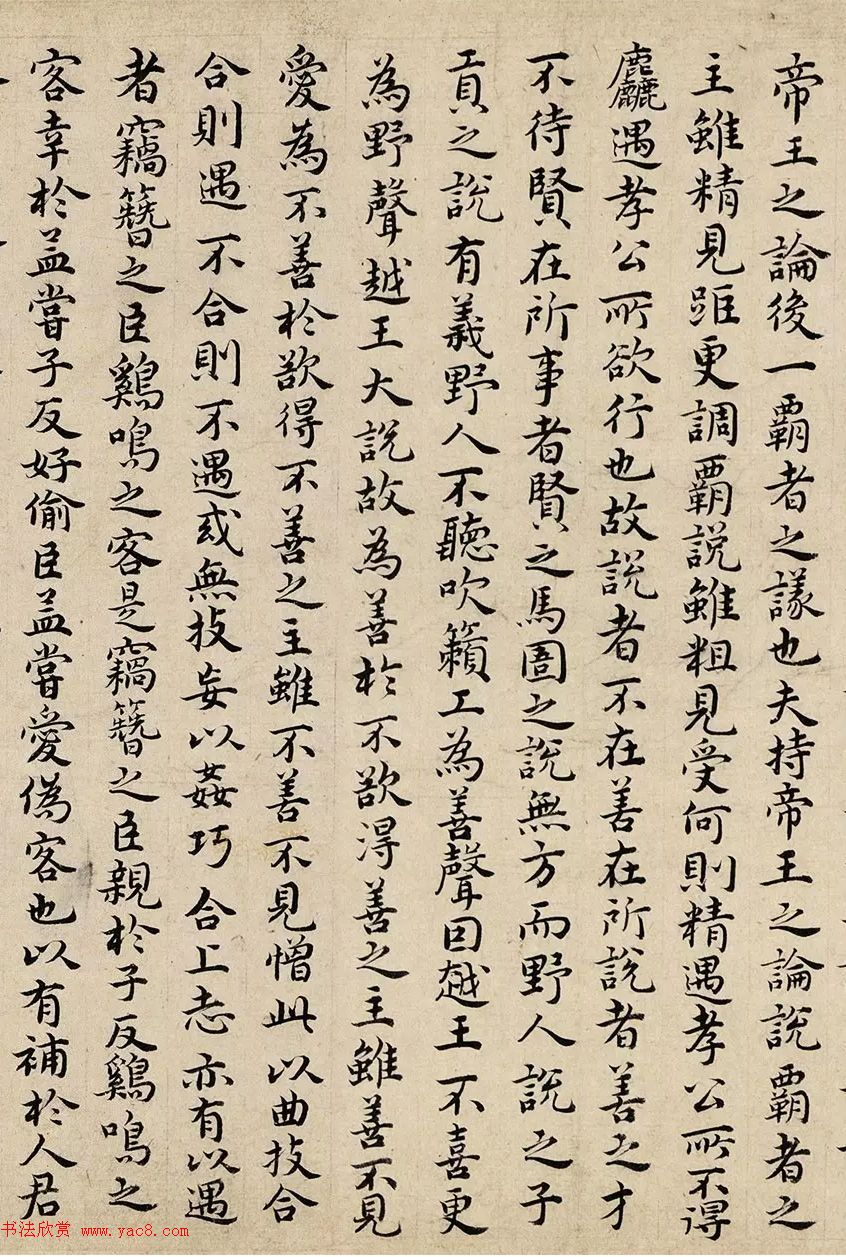 帝王之論後一覇者之議也夫持帝王之論說覇者之
主雖精見距更調覇說雖粗見受何則精遇孝公所不得
麤遇孝公所欲行也故說者不在善在所說者善之才
不待賢在所事者賢之馬圄之說無方而野人說之子
貢之說有義野人不聽吹籟工為善聲因越王不喜更
為野聲越王大說故為善於不欲得善之主雖善不見
愛為不善於欲得不善之主雖不善不見憎此以曲技合
合則遇不合則不遇或無技妄以姦巧合上志亦有以遇
者竊簪之臣鷄鳴之客是竊簪之臣親於子反鷄鳴之
客幸於孟嘗子反好偷臣孟嘗愛偽客也以有補於人君
书法欣赏 www.yac8.com